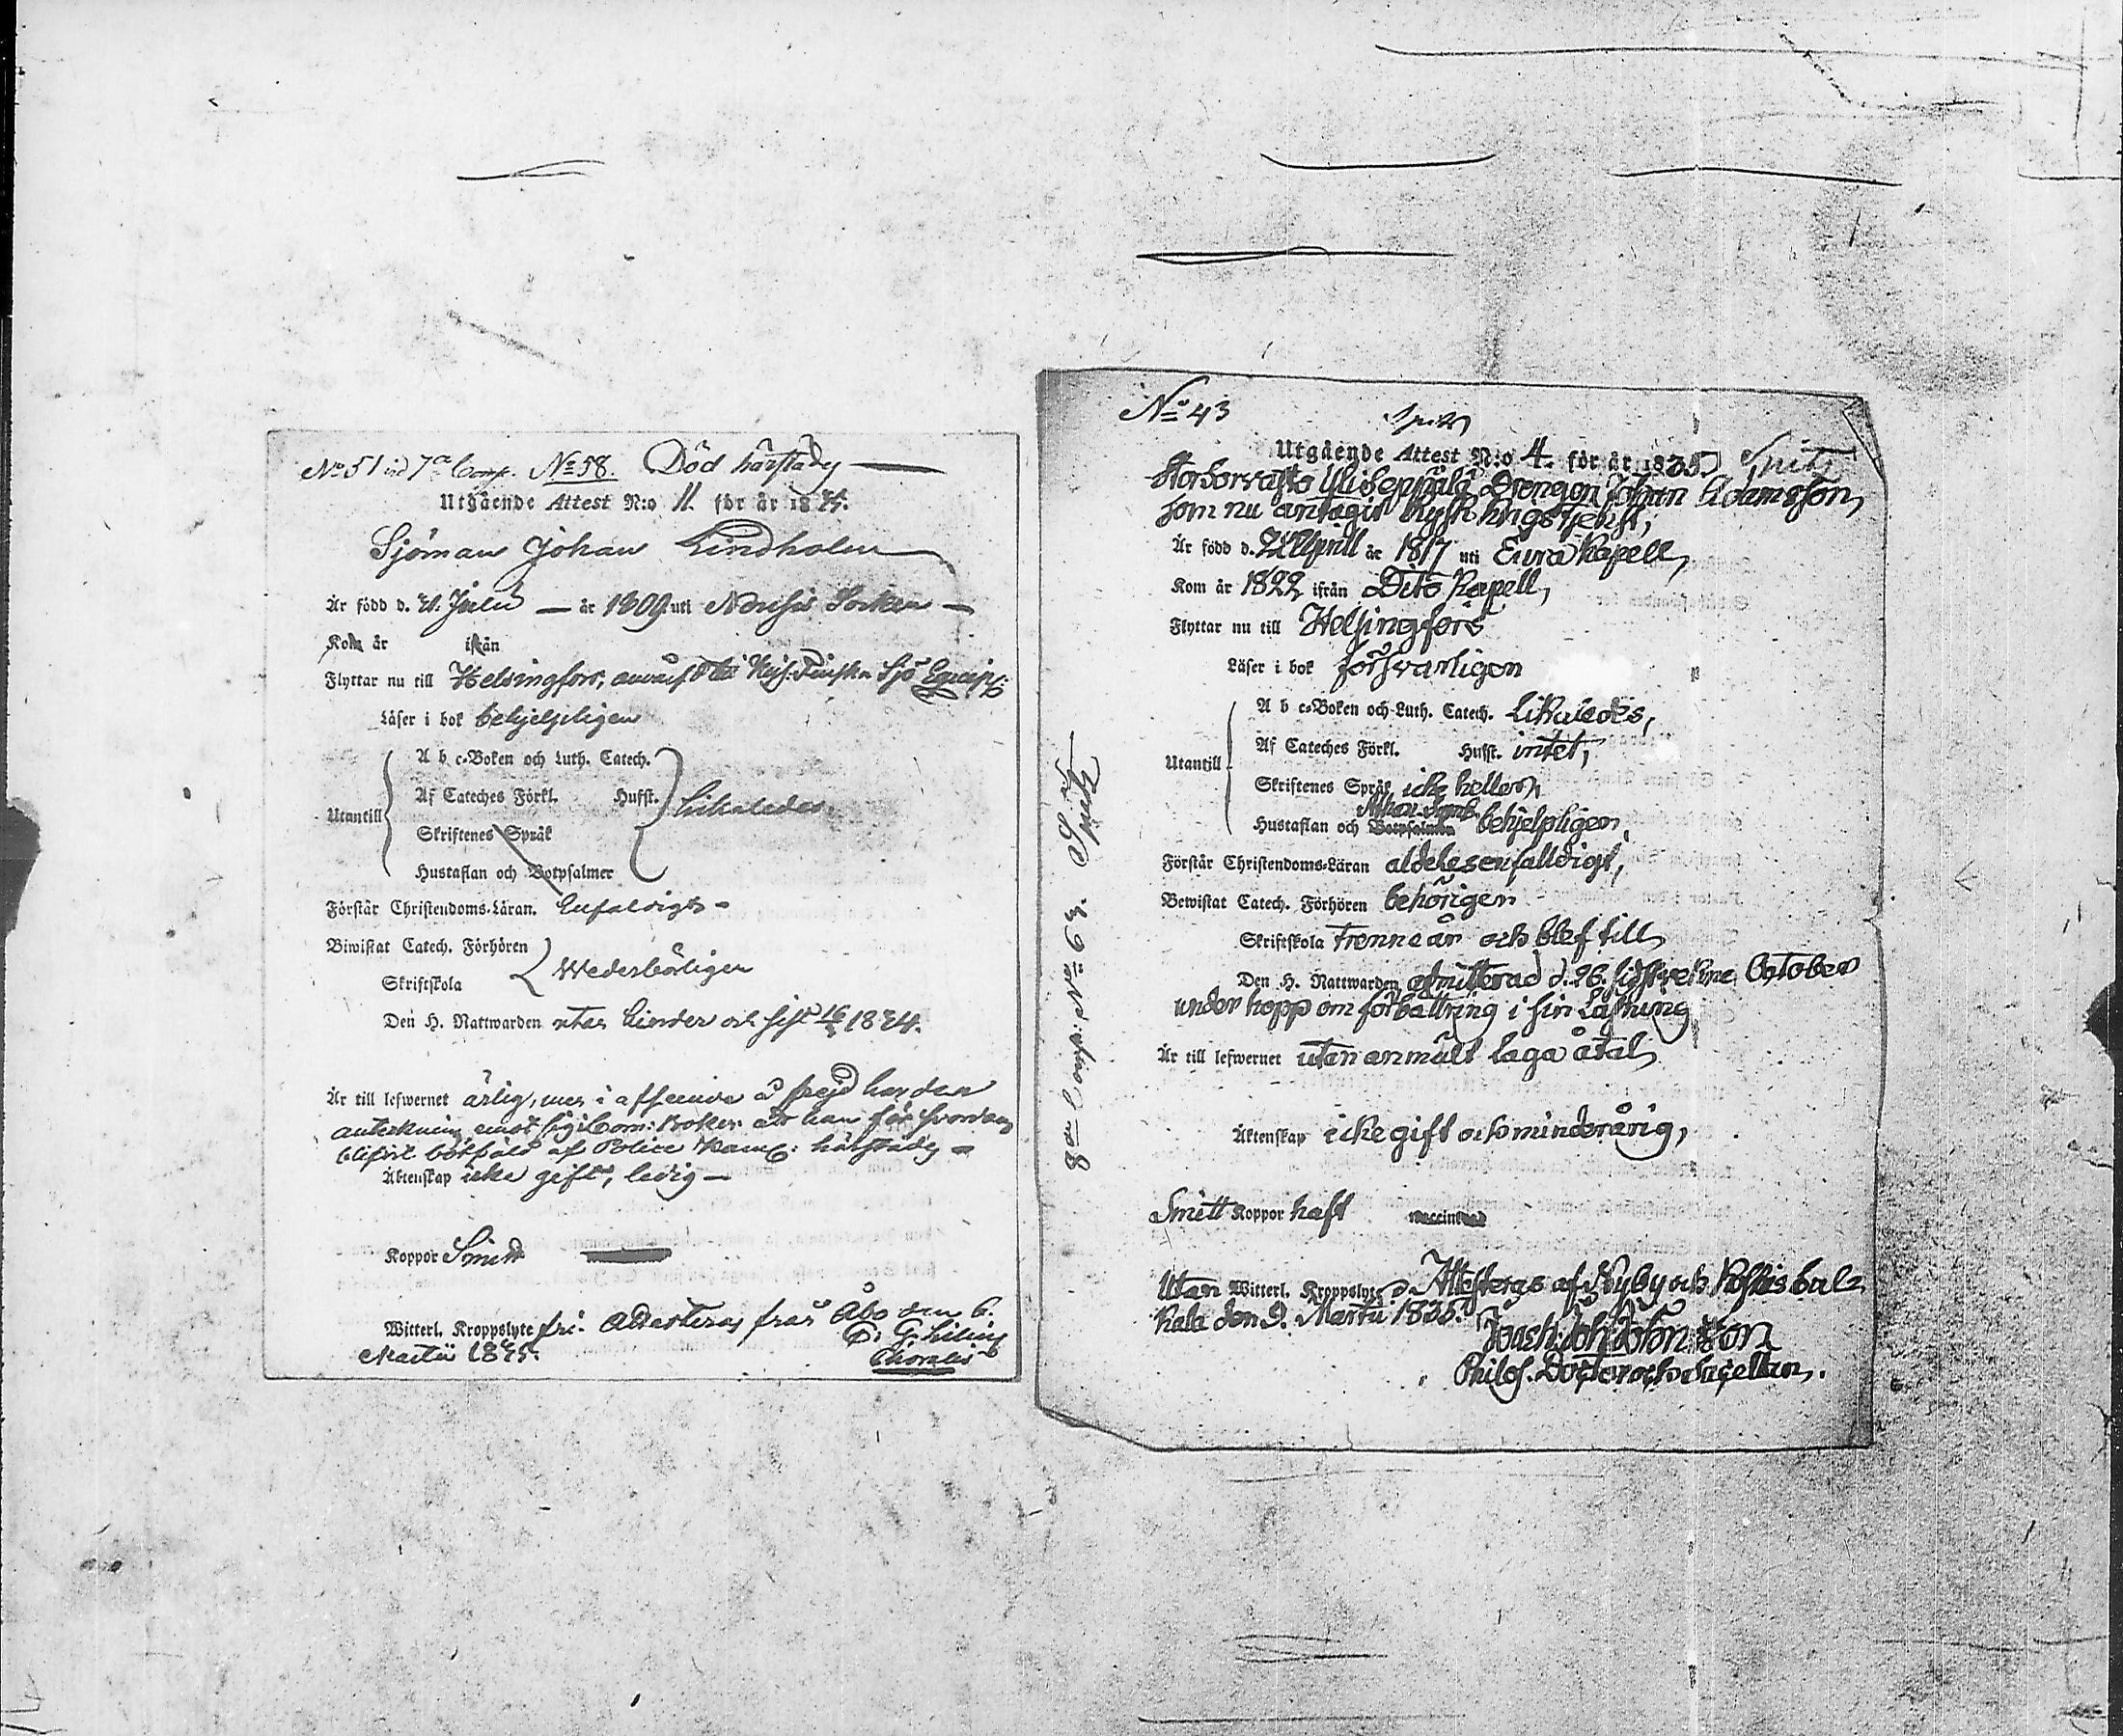 No 51 vid 7a Comp. No 58. Död härstädes
Utgående Attest N:o 11. för år 1835.
Sjöman Johan Lindholm
Är född d. 21. Julii — år 1809 uti Nousis Socken —
Kom år ifrån
Flyttar nu till Helsingfors, Kejs. Finska Sjö Equip:
Läser i bok behjelpligen
Utantill
A b c-Boken och Luth. Catech.
Af Cateches Förkl. Husst.
Skriftenes Språk
Hustaflan och Botpsalmer
Likaledes
Förstår Christendoms-Läran. Enfaldigt -
Biwistat Catech. Förhören
Skriftskola
Wederbörligen
Den H. Nattwarden utan hinder och sist 16 1834.
Är till lefwernet ärlig, men i afseende å frejd har den
anteckning uti Com: Boken att han för
blifvit bötfäld af Police Kam: härstädes
Äktenskap icke gift, ledig —
Koppor
Witterl. Kroppslyte fri. Attesteras från Åbo den 6.
Martii 1835.
No 43
Spits
Utgående Attest N:o 4. för år 1835 Spits
Drengen Johan Adamsson,
som nu antagit Krigstjenst,
Är född d. April år 1817 uti Eura Kapell,
Kom år 1822 ifrån Dito Kapell,
Flyttar nu till Helsingfors
Läser i bok försvarligen
Utantill
A b c-Boken och Luth. Catech. Likaledes,
Af Cateches Förkl. Husst. intet,
Skriftenes Språk icke heller,
Athan. Symb.
Hustaflan och Botpsalmer behjelpligen,
Förstår Christendoms-Läran aldeles enfalldigt,
Bewistat Catech. Förhören behörigen
Skriftskola trenne år och blef till
Den H. Nattwarden admitterad d. 26. sidstvekne October
under hopp om förbättring i sin Läsning
Är till lefwernet utan anmält laga åtal,
Äktenskap icke gift och minderårig,
Smitt Koppor haft vaccinerad
Utan Witterl. Kroppslyte, Attesteras af Nyby och
den 9. Martii 1835.
Philos. Doctor och Sacellan.
8de Comp: No 63. Spits